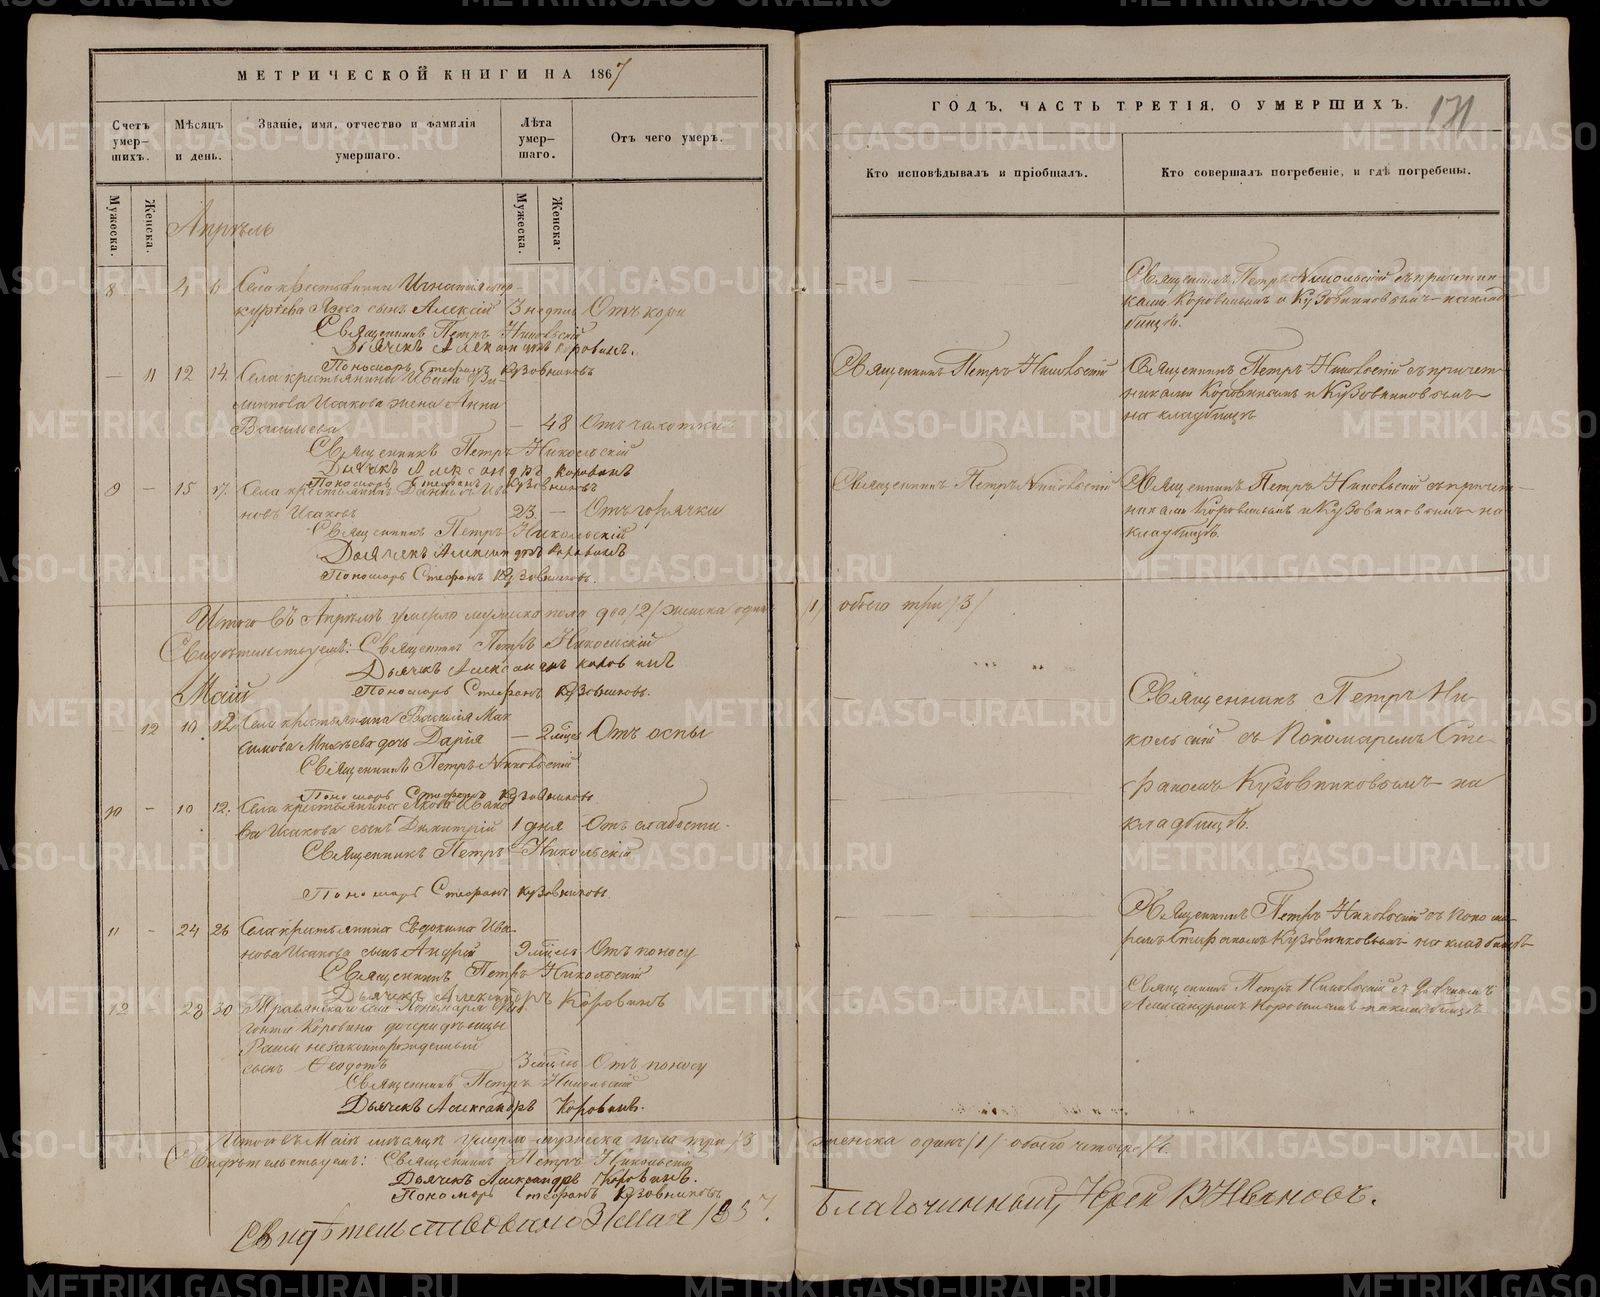 МЕТРИЧЕСКОЙ КНИГИ НА 1867
Счетъ умер-шихъ.
Мѣсяцъ и день.
Званіе, имя, отчество и фамилія умершаго.
Лѣта умер-шаго.
Отъ чего умеръ.
Мужеска.
Женска.
Мужеска.
Женска.
Апрѣль
8 4 6 Села крестьянина Игнатія
сынъ Алексій 3 недѣль Отъ кори
Священникъ Петръ Никольскій
Дьячекъ Александръ Коровинъ.
Пономарь Стефанъ Кузовниковъ
— 11 12 14 Села крестьянина Ивана Фи-
липпова Исакова жена Анна
Васильева — 48 Отъ чахотки
Священникъ Петръ Никольскій
Дьячекъ Александръ Коровинъ
Пономарь Стефанъ Кузовниковъ
9 — 15 17 Села крестьянинъ Ива-
новъ Исаковъ 23 — Отъ горячки
Священникъ Петръ Никольскій
Дьячекъ Александръ Коровинъ
Пономарь Стефанъ Кузовниковъ.
Итого въ Апрѣлѣ умерло мужеска пола два /2/ женска одна
Свидѣтельствуемъ: Священникъ Петръ Никольскій
Дьячекъ Александръ Коровинъ
Пономарь Стефанъ Кузовниковъ.
Маій
— 12 10 12 Села крестьянина Василія Мак-
симова дочь Дарія — 2 мѣсяц Отъ оспы
Священникъ Петръ Никольскій
Пономарь Стефанъ Кузовниковъ
10 — 10 12 Села крестьянина Якова Ивано-
ва Исакова сынъ Димитрій 1 дня Отъ слабости.
Священникъ Петръ Никольскій
Пономарь Стефанъ Кузовниковъ
11 — 24 26 Села крестьянина Евдокима Ива-
нова Исакова сынъ Андрей 9 мѣсяц Отъ поносу
Священникъ Петръ Никольскій
Дьячекъ Александръ Коровинъ
12 — 28 30 Травянскаго села Пономаря
Коровина дочери дѣвицы
Раисы незаконнорожденный
сынъ Ѳеодотъ 3 мѣсяц Отъ поносу
Священникъ Петръ Никольскій
Дьячекъ Александръ Коровинъ.
Итого въ Маіѣ мѣсяцѣ умерло мужеска пола три /3
Свидѣтельствуемъ: Священникъ Петръ Никольскій
Дьячекъ Александръ Коровинъ.
Пономарь Стефанъ Кузовниковъ
Свидѣтельствовалъ 31 мая 1867.
ГОДЪ, ЧАСТЬ ТРЕТІЯ, О УМЕРШИХЪ.
171
Кто исповѣдывалъ и пріобщалъ.
Кто совершалъ погребеніе, и гдѣ погребены.
Священникъ Петръ Никольскій съ причетни-
ками Коровинымъ и Кузовниковымъ на клад-
бищѣ.
Священникъ Петръ Никольскій
Священникъ Петръ Никольскій съ причет-
никами Коровинымъ и Кузовниковымъ
на кладбищѣ
Священникъ Петръ Никольскій
Священникъ Петръ Никольскій съ причет-
никами Коровинымъ и Кузовниковымъ на
кладбищѣ.
/1/ обоего три /3/
Священникъ Петръ Ни-
кольскій съ Пономаремъ Сте-
фаномъ Кузовниковымъ на
кладбищѣ.
Священникъ Петръ Никольскій съ Понома-
ремъ Стефаномъ Кузовниковымъ на кладбищѣ
Священникъ Петръ Никольскій съ Дьячкомъ
Александромъ Коровинымъ на кладбищѣ
женска одинъ /1/ обоего четыре /4.
Благочинный, Іерей В Ивановъ.
METRIKI.GASO-URAL.RU